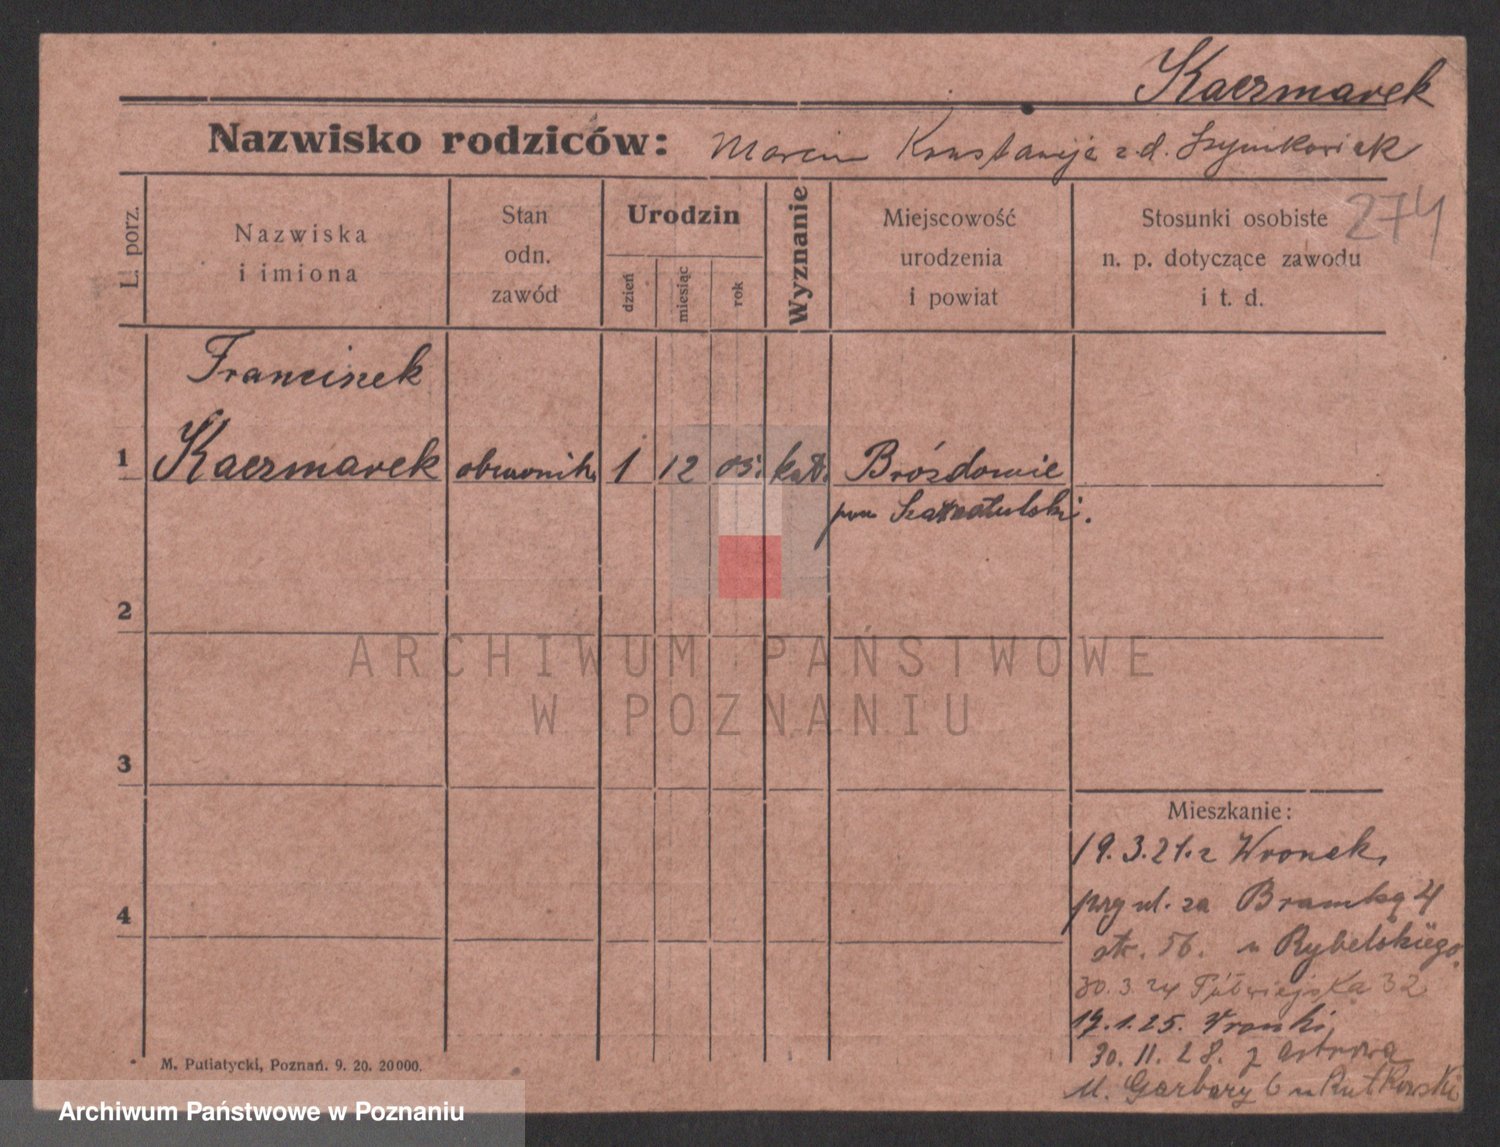 Kaczmarek
Nazwisko rodziców: Marcin Konstancja z d. Szymkowiak
274
L. porz.
Nazwiska
i imiona
Stan
odn.
zawód
Urodzin
dzień
miesiąc
rok
Wyznanie
Miejscowość
urodzenia
i powiat
Stosunki osobiste
n. p. dotyczące zawodu
i t. d.
Franciszek
1 Kaczmarek 1 12 05. kat. Bróżdowie
pow Szamotulski.
2
ARCHIWUM PAŃSTWOWE
W POZNANIU
3
Mieszkanie:
19.3.21. z Wronek,
przy ul. za Bramką 4
str. 56. u Rybelskiego.
30.3.24 Półwiejska 32
4
17.1.25. Wronki,
30.11.28. z Ostrowa
M. Putiatycki, Poznań. 9. 20. 20000.
Garbary 6 u Rutkowski
Archiwum Państwowe w Poznaniu